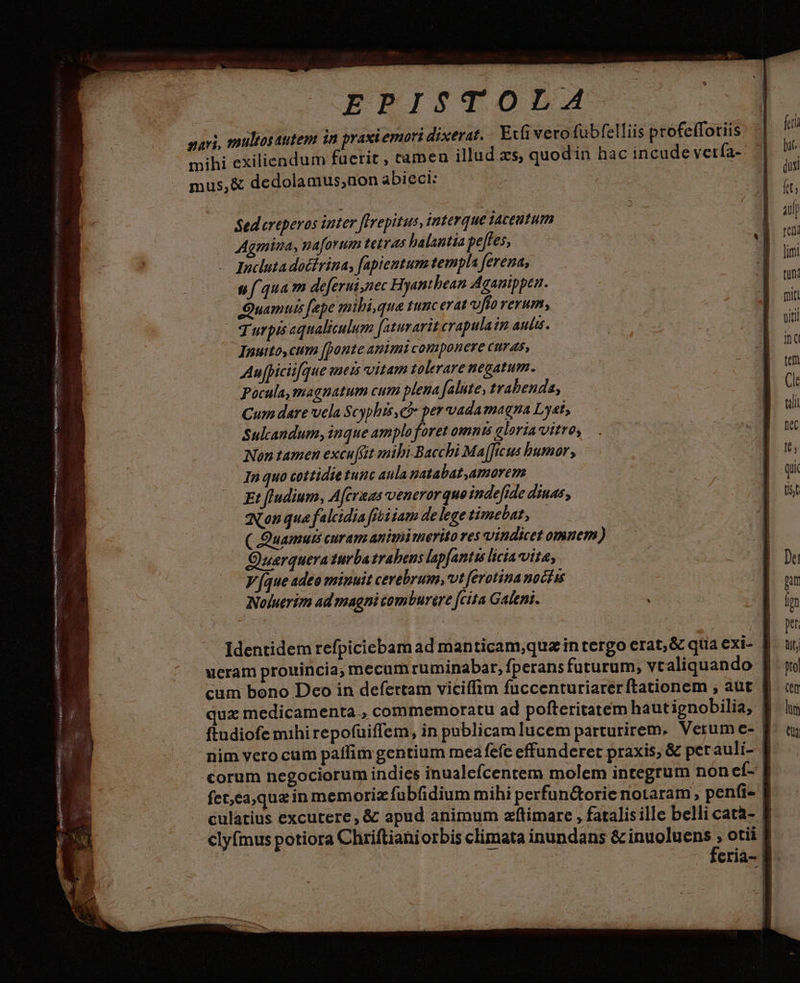 EPISTOLA
nari, multos autem in praxi emori dixerat. Etſi vero ſubſelliis profeſſoriis
mihi exiliendum fuerit, tamen illud æs, quod in hac incude verſa-
mus, & dedolamus, non abieci:
Sed creperos inter ſtrepitus, interque iacentum
Agmina, naſorum tetras halantia peſtes,
Incluta doctrina, ſapientum templa ſerena,
uſquam deſerui, nec Hyantheân Aganippen.
Quamuis ſæpe mihi, quæ tunc erat vſto rerum,
Turpis aqualiculum ſaturarit crapula in aulis.
Inuito, cum ſponte animi componere curas,
Auſpiciiſque meis vitam tolerare negatum.
Pocula, magnatum cum plena ſalute, trahenda,
Cum dare vela Scyphis, & per vada magna Lyæi,
Sulcandum, inque amplo foret omnis gloria vitro,
Non tamen excuſſit mihi Bacchi Maſſicus humor,
In quo cottidie tunc aula natabat, amorem
Et ſtudium, Aſcræas veneror quo indeſide diuas,
Non quæ falcidia ſibi iam de lege timebat,
( Quamuis curam animi merito res vindicet omnem )
Querquera turba trahens lapſantis licia vitæ,
Vſque adeo minuit cerebrum, vt ſerotina noctis
Noluerim ad magni comburere ſcita Galeni.
Identidem reſpiciebam ad manticam, quæ in tergo erat, & qua exi-
ueram prouincia; mecum ruminabar, ſperans futurum, vt aliquando
cum bono Deo in deſertam viciſſim ſuccenturiarer ſtationem, aut
quæ medicamenta, commemoratu ad poſteritatem haut ignobilia,
ſtudioſe mihi repoſuiſſem, in publicam lucem parturirem. Verum e-
nim vero cum paſſim gentium mea ſeſe effunderet praxis, & per auli-
corum negociorum indies inualeſcentem molem integrum non eſ-
ſet, ea, quæ in memoriæ ſubſidium mihi perfunctorie notaram, penſi-
culatius excutere, & apud animum æſtimare, fatalis ille belli cata-
clyſmus potiora Chriſtiani orbis climata inundans & inuoluens, otii
feria-